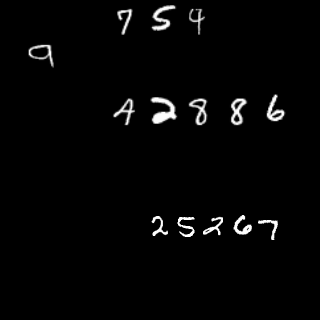 754
9
42886
25267